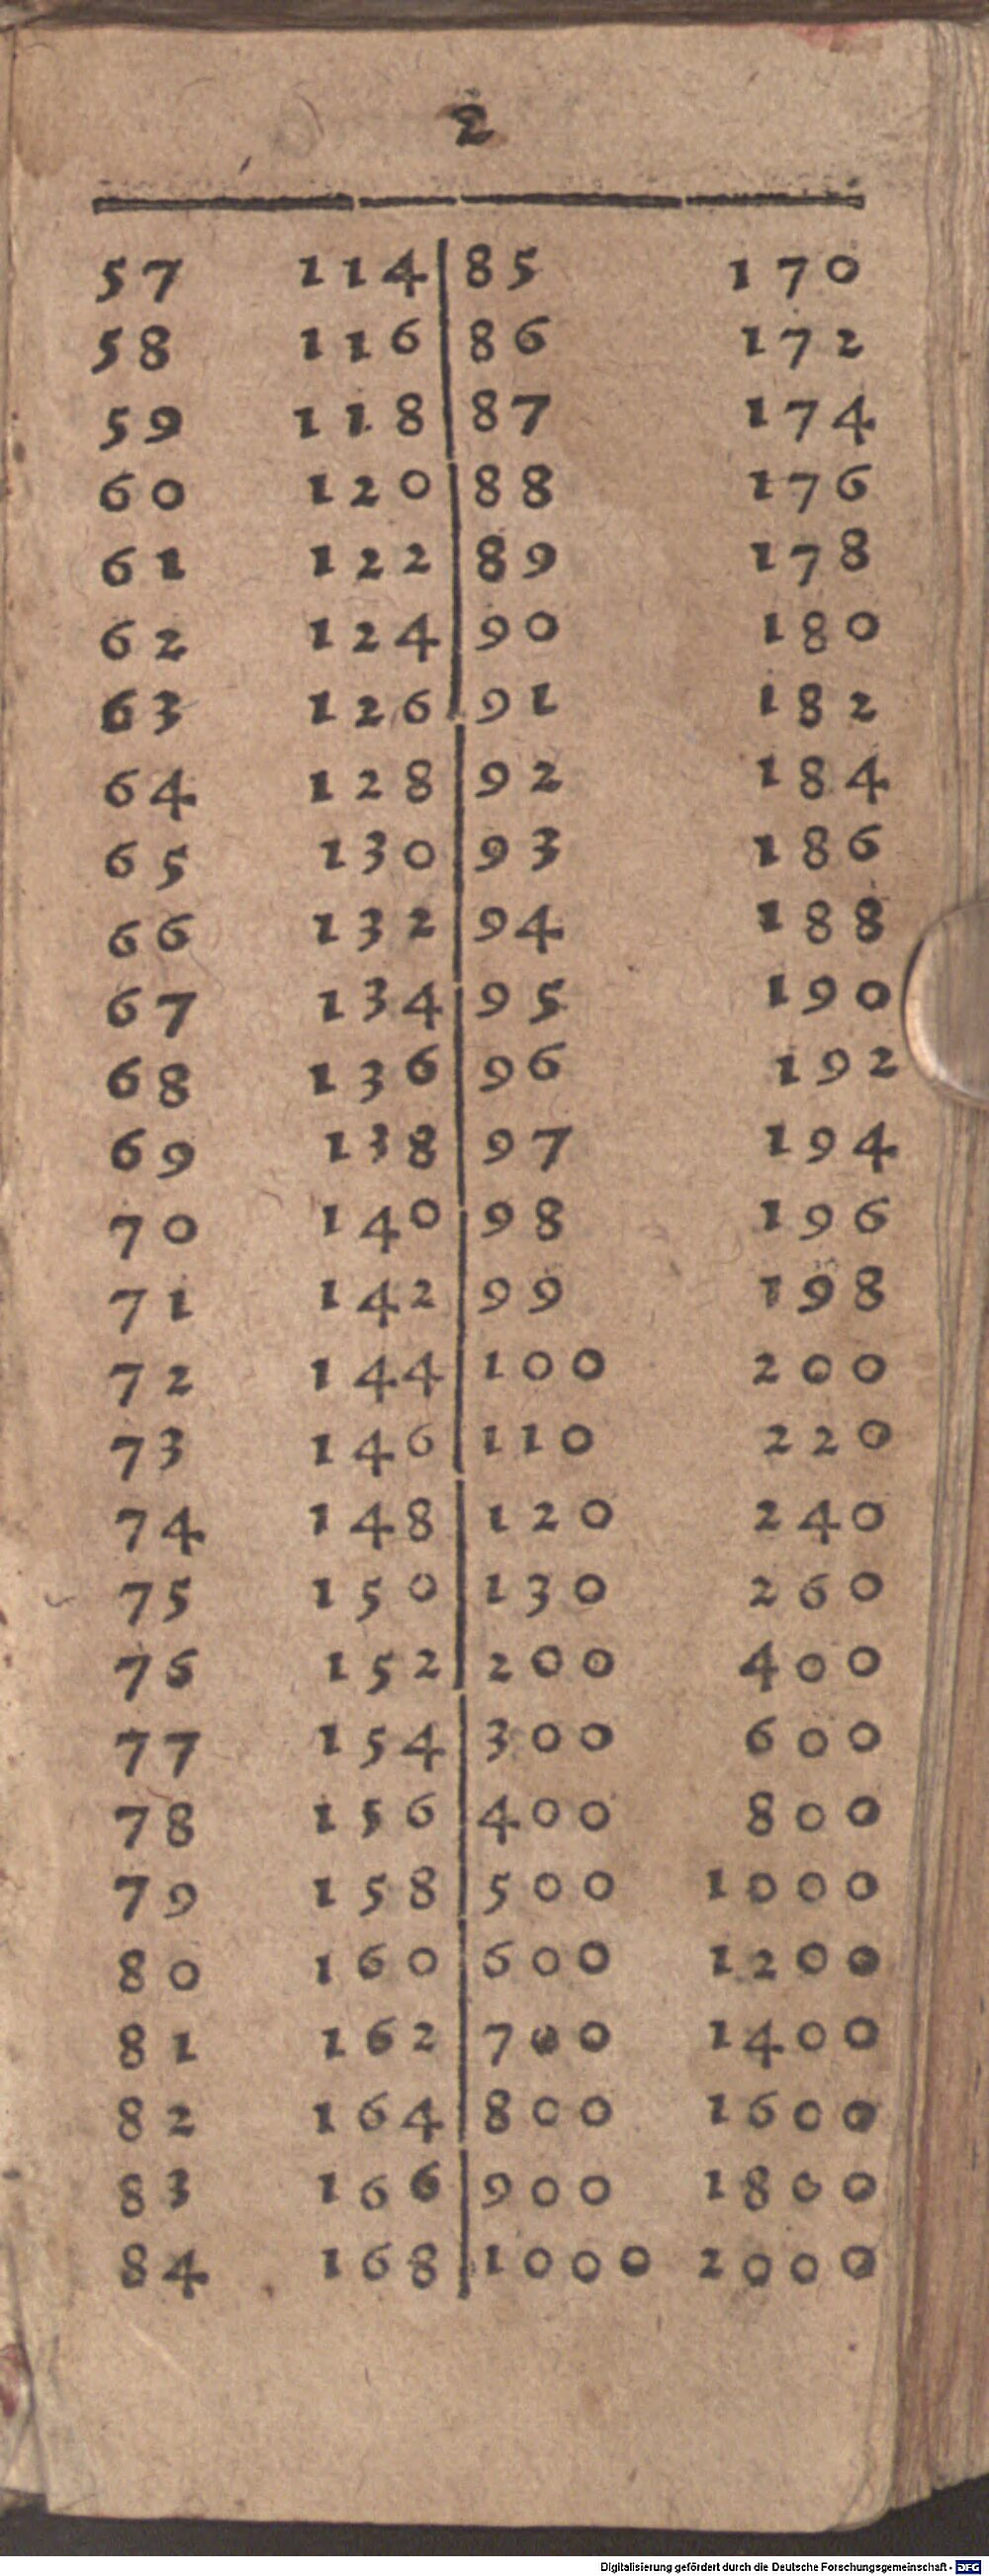 2
57 114 85 170
58 116 86 172
59 118 87 174
60 120 88 176
61 122 89 178
62 124 90 180
63 126 91 182
64 128 92 184
65 130 93 186
66 132 94 188
67 134 95 190
68 136 96 192
69 138 97 194
70 140 98 196
71 142 99 198
72 144 100 200
73 146 110 220
74 148 120 240
75 150 130 260
76 152 200 400
77 154 300 600
78 156 400 800
79 158 500 1000
80 160 600 1200
81 162 700 1400
82 164 800 1600
83 166 900 1800
84 168 1000 2000
Digitalisierung gefördert durch die Deutsche Forschungsgemeinschaft - DFG